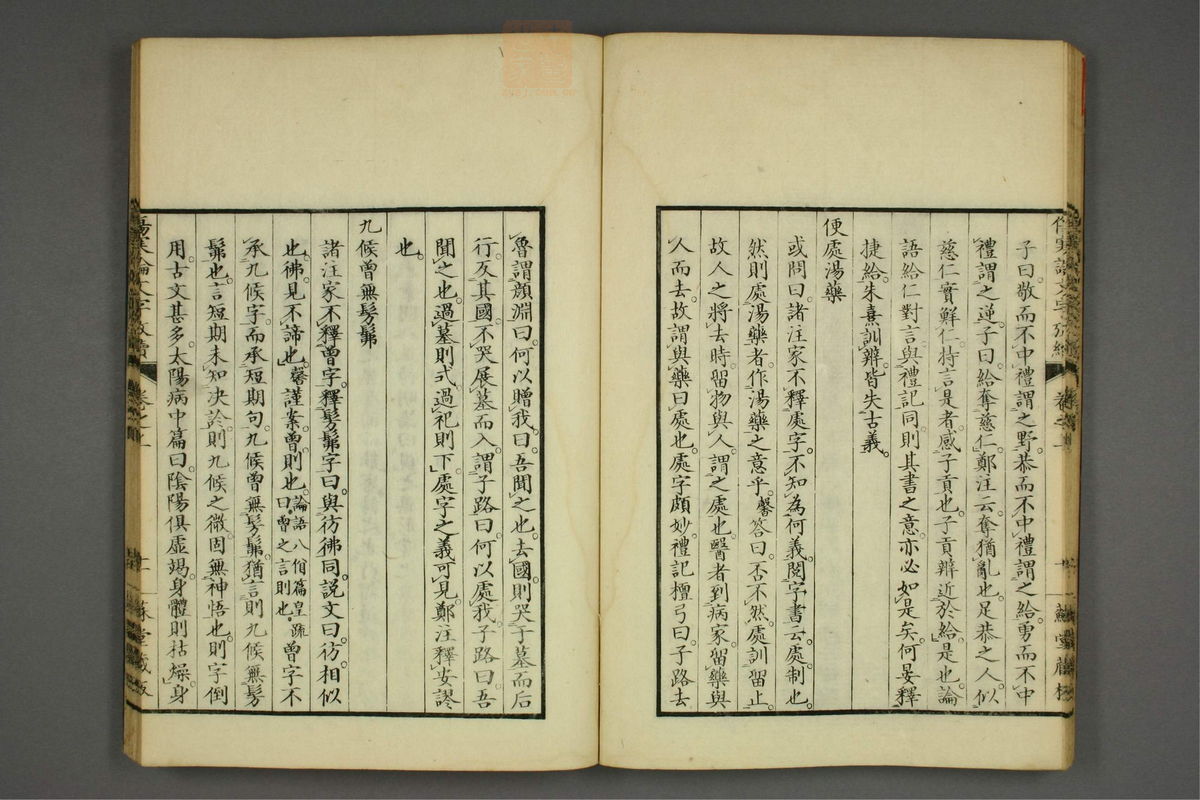 子曰。敬而不中禮謂之野。恭而不中禮謂之給。勇而不中
禮謂之逆。子曰。給奪慈仁。鄭注云。奪猶亂也。足恭之人。似
慈仁實鮮仁。特言是者。感子貢也。子貢辯近於給。是也。論
語給仁對言。與禮記同。則其書之意亦必如是矣。何晏釋
捷給。朱熹訓辨。皆失古義。
便處湯藥
或問曰。諸注家不釋處字。不知為何義。閱字書云。處。制也。
然則處湯藥者。作湯藥之意乎。馨答曰。否不然。處訓留止。
故人之將去時。留物與人。謂之處也。醫者到病家。留藥與
人而去。故謂與藥曰處也。處字頗妙。禮記檀弓曰。子路去
魯。謂顔淵曰。何以贈我。曰。吾聞之也。去國則哭于墓而后
行。反其國不哭。展墓而入。謂子路曰。何以處我。子路曰。吾
聞之也。過墓則式。過祀則下。處字之義可見。鄭注釋安謬
也。
九候曽無髣髴
諸注家不釋曽字。釋髣髴字曰。與彷彿同。説文曰。彷相似
也。彿。見不諦也。馨謹案。曽。則也。論語八佾篇皇疏曰。曽之言則也。曽字不
承九候字。而承短期句。九候曽無髣髴。猶言則九候無髣
髴也。言短期未知決診。則九候之微。固無神悟也。則字倒
用。古文甚多。太陽病中篇曰。陰陽俱虛竭。身體則枯燥。身
傷寒論文字攷續 卷之上